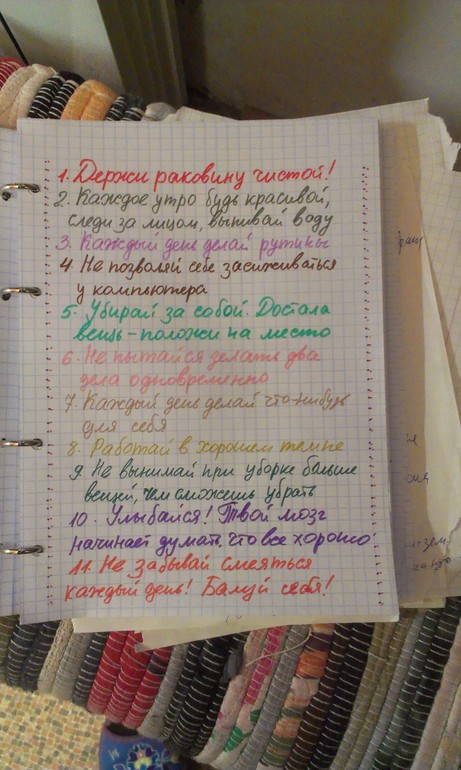 1. Держи раковину чистой!
2. Каждое утро будь красивой,
следи за лицом, выпивай воду
3. Каждый день делай рутины
4. Не позволяй себе засиживаться
у компьютера
5. Убирай за собой. Достала
вещь - положи на место
6. Не пытайся делать два
дела одновременно
7. Каждый день делай что-нибудь
для себя
8. Работай в хорошем темпе
9. Не вынимай при уборке больше
вещей, чем сможешь убрать
10. Улыбайся! Твой мозг
начинает думать, что все хорошо
11. Не забывай смеяться
каждый день! Балуй себя!